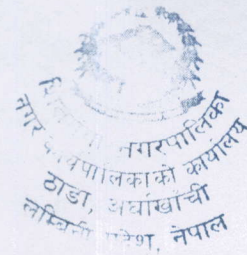 नगरपालिका
नगर कार्यपालिकाको कार्यालय
ठाडा, अर्घाखाँची
लुम्बिनी प्रदेश, नेपाल